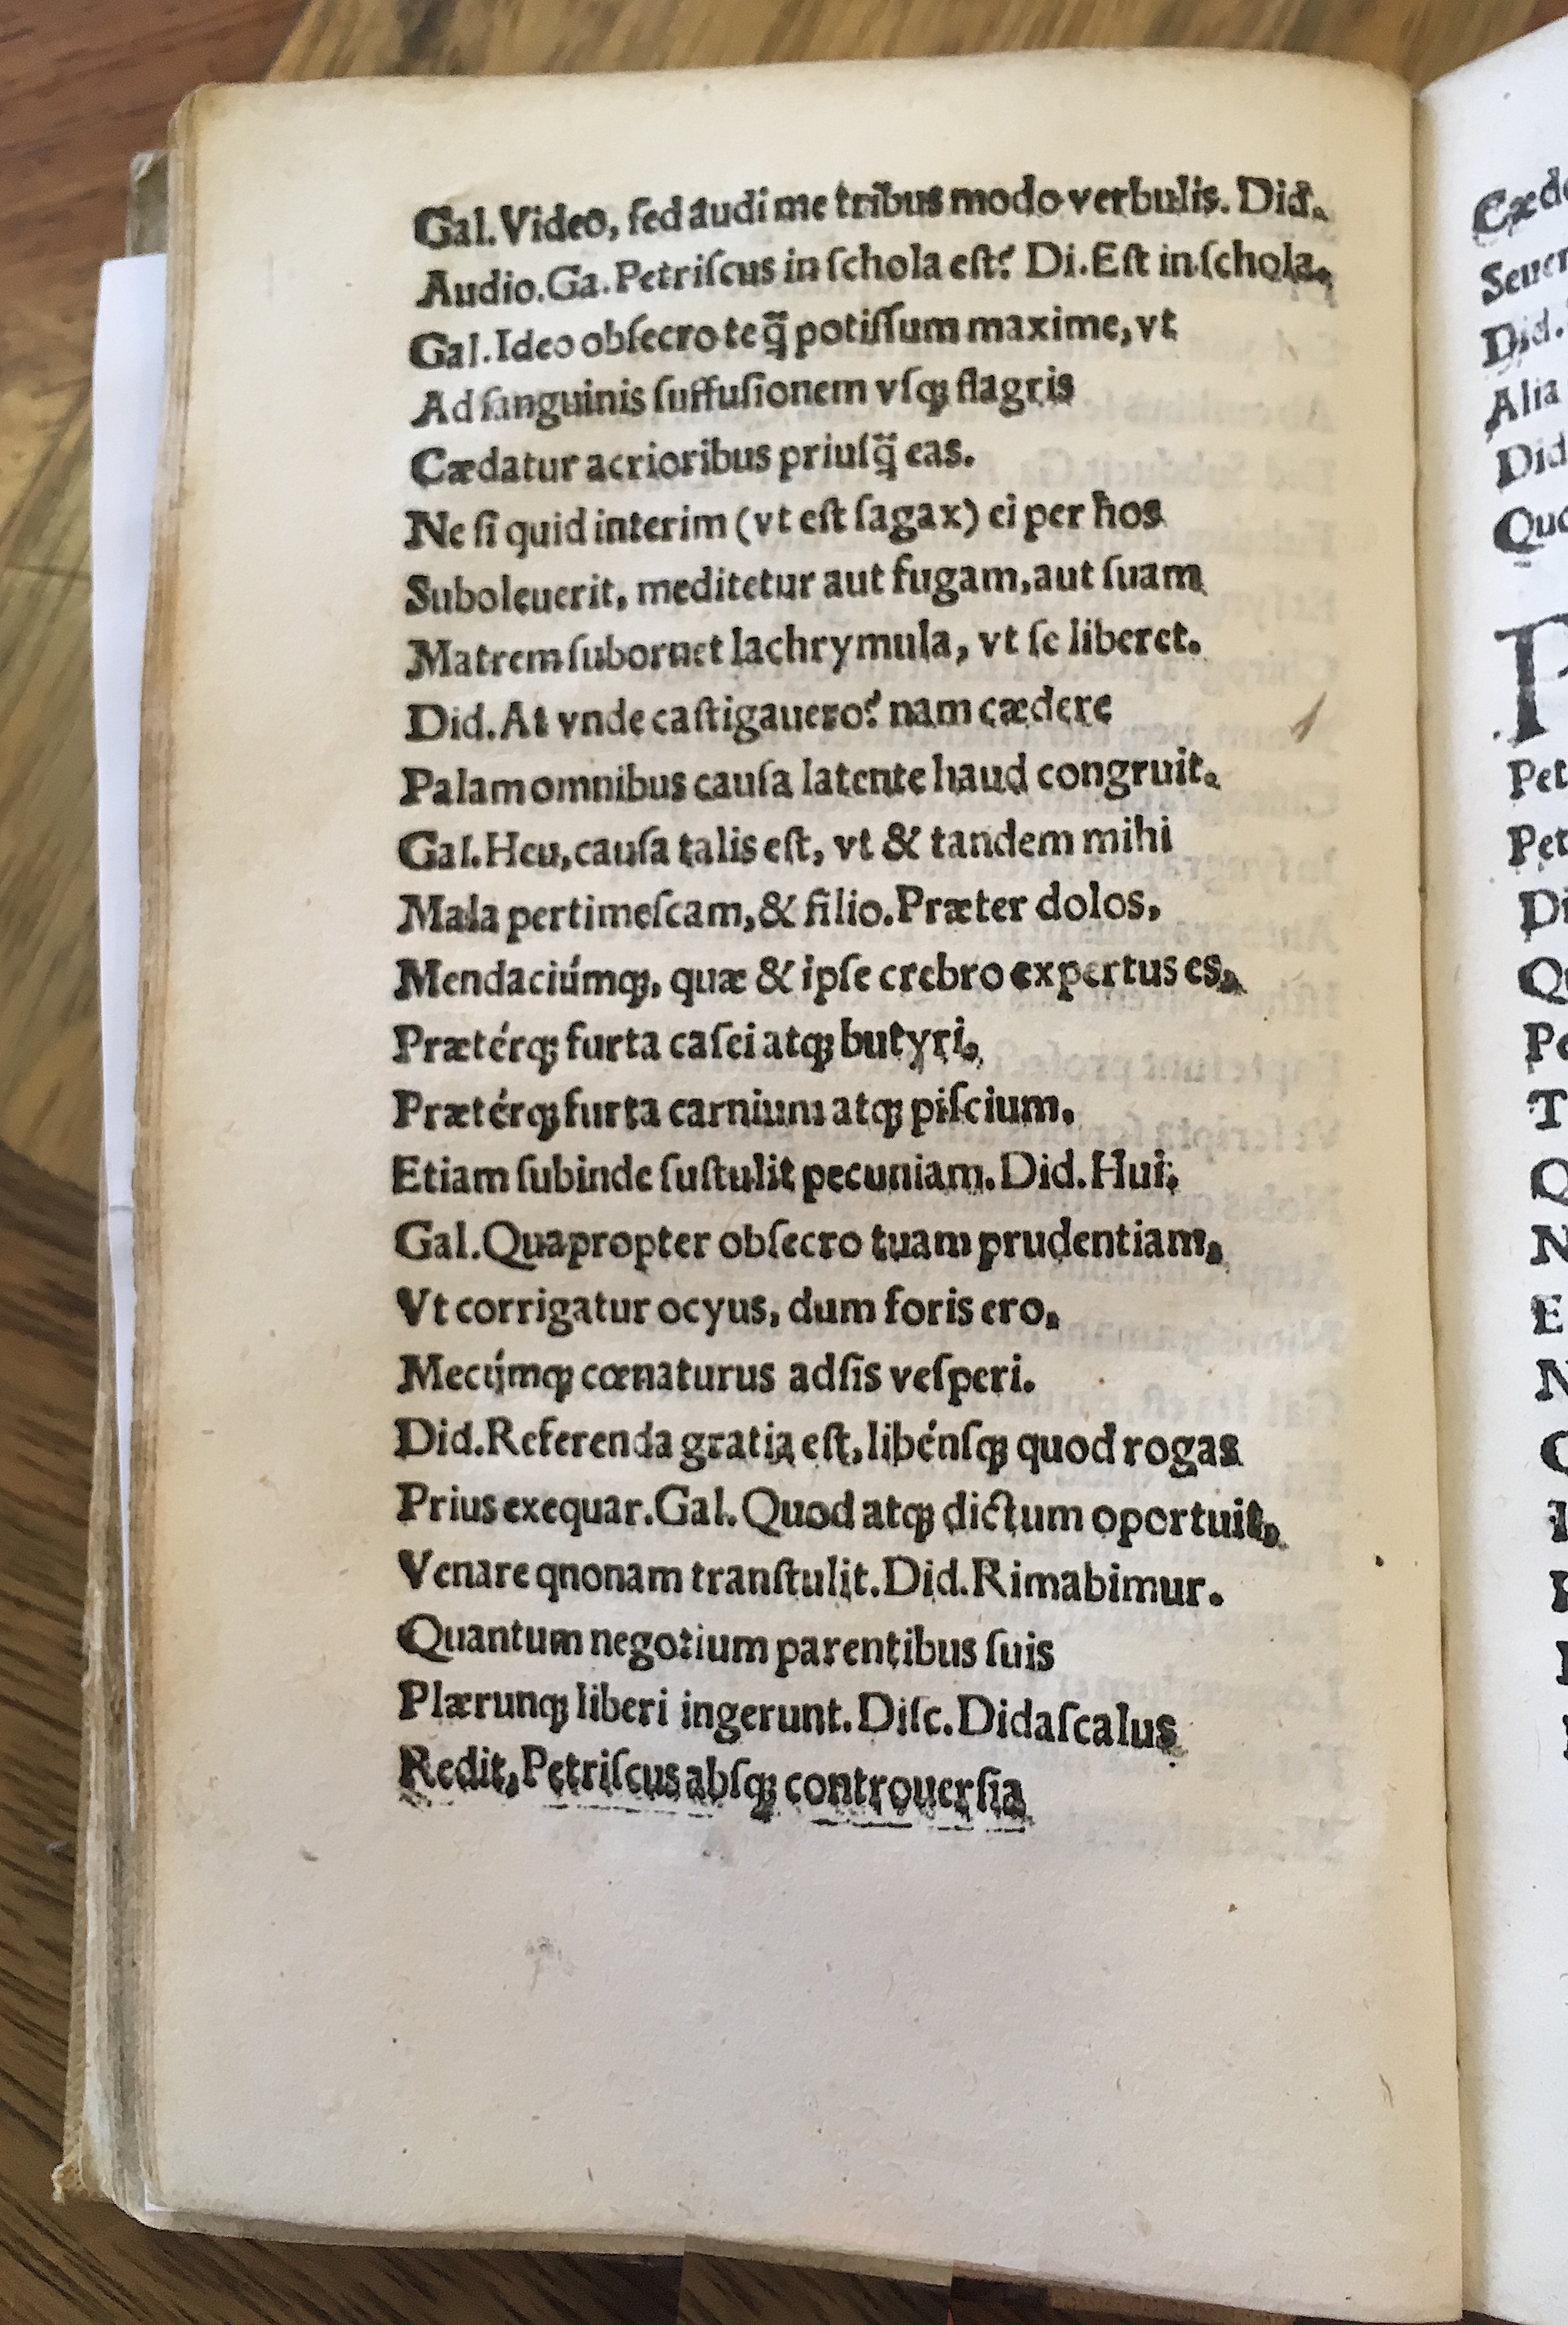 Gal.Video, ſed audi me tribus modo verbulis. Did.
Audio.Ga.Petriſcus in ſchola eſt? Di.Eſt in ſchola.
Gal.Ideo obſecro te q̃ potiſſum maxime, vt
Ad ſanguinis ſuffuſionem vſqꝫ flagris
Cædatur acrioribus priuſq̃ eas.
Ne ſi quid interim (vt eſt ſagax) ei per hos
Suboleuerit, meditetur aut fugam, aut ſuam
Matrem ſubornet lachrymula, vt ſe liberet.
Did.At vnde caſtigauero? nam cædere
Palam omnibus cauſa latente haud congruit.
Gal.Heu, cauſa talis eſt, vt & tandem mihi
Mala pertimeſcam, & filio. Præter dolos,
Mendaciúmqꝫ, quæ & ipſe crebro expertus es,
Prætérqꝫ furta caſei atqꝫ butyri,
Prætérqꝫ furta carnium atqꝫ piſcium.
Etiam ſubinde ſuſtulit pecuniam. Did. Hui;
Gal.Quapropter obſecro tuam prudentiam,
Vt corrigatur ocyus, dum foris ero,
Mecúmqꝫ cœnaturus adſis veſperi.
Did.Referenda gratia eſt, libénſqꝫ quod rogas
Prius exequar.Gal.Quod atqꝫ dictum oportuit,
Venare qnonam tranſtulit.Did.Rimabimur.
Quantum negotium parentibus ſuis
Plærunqꝫ liberi ingerunt.Diſc.Didaſcalus
Redit, Petriſcus abſqꝫ controuerſia
Seuer
Did.
Alia
Did
Quo
Pet
Pet
Di